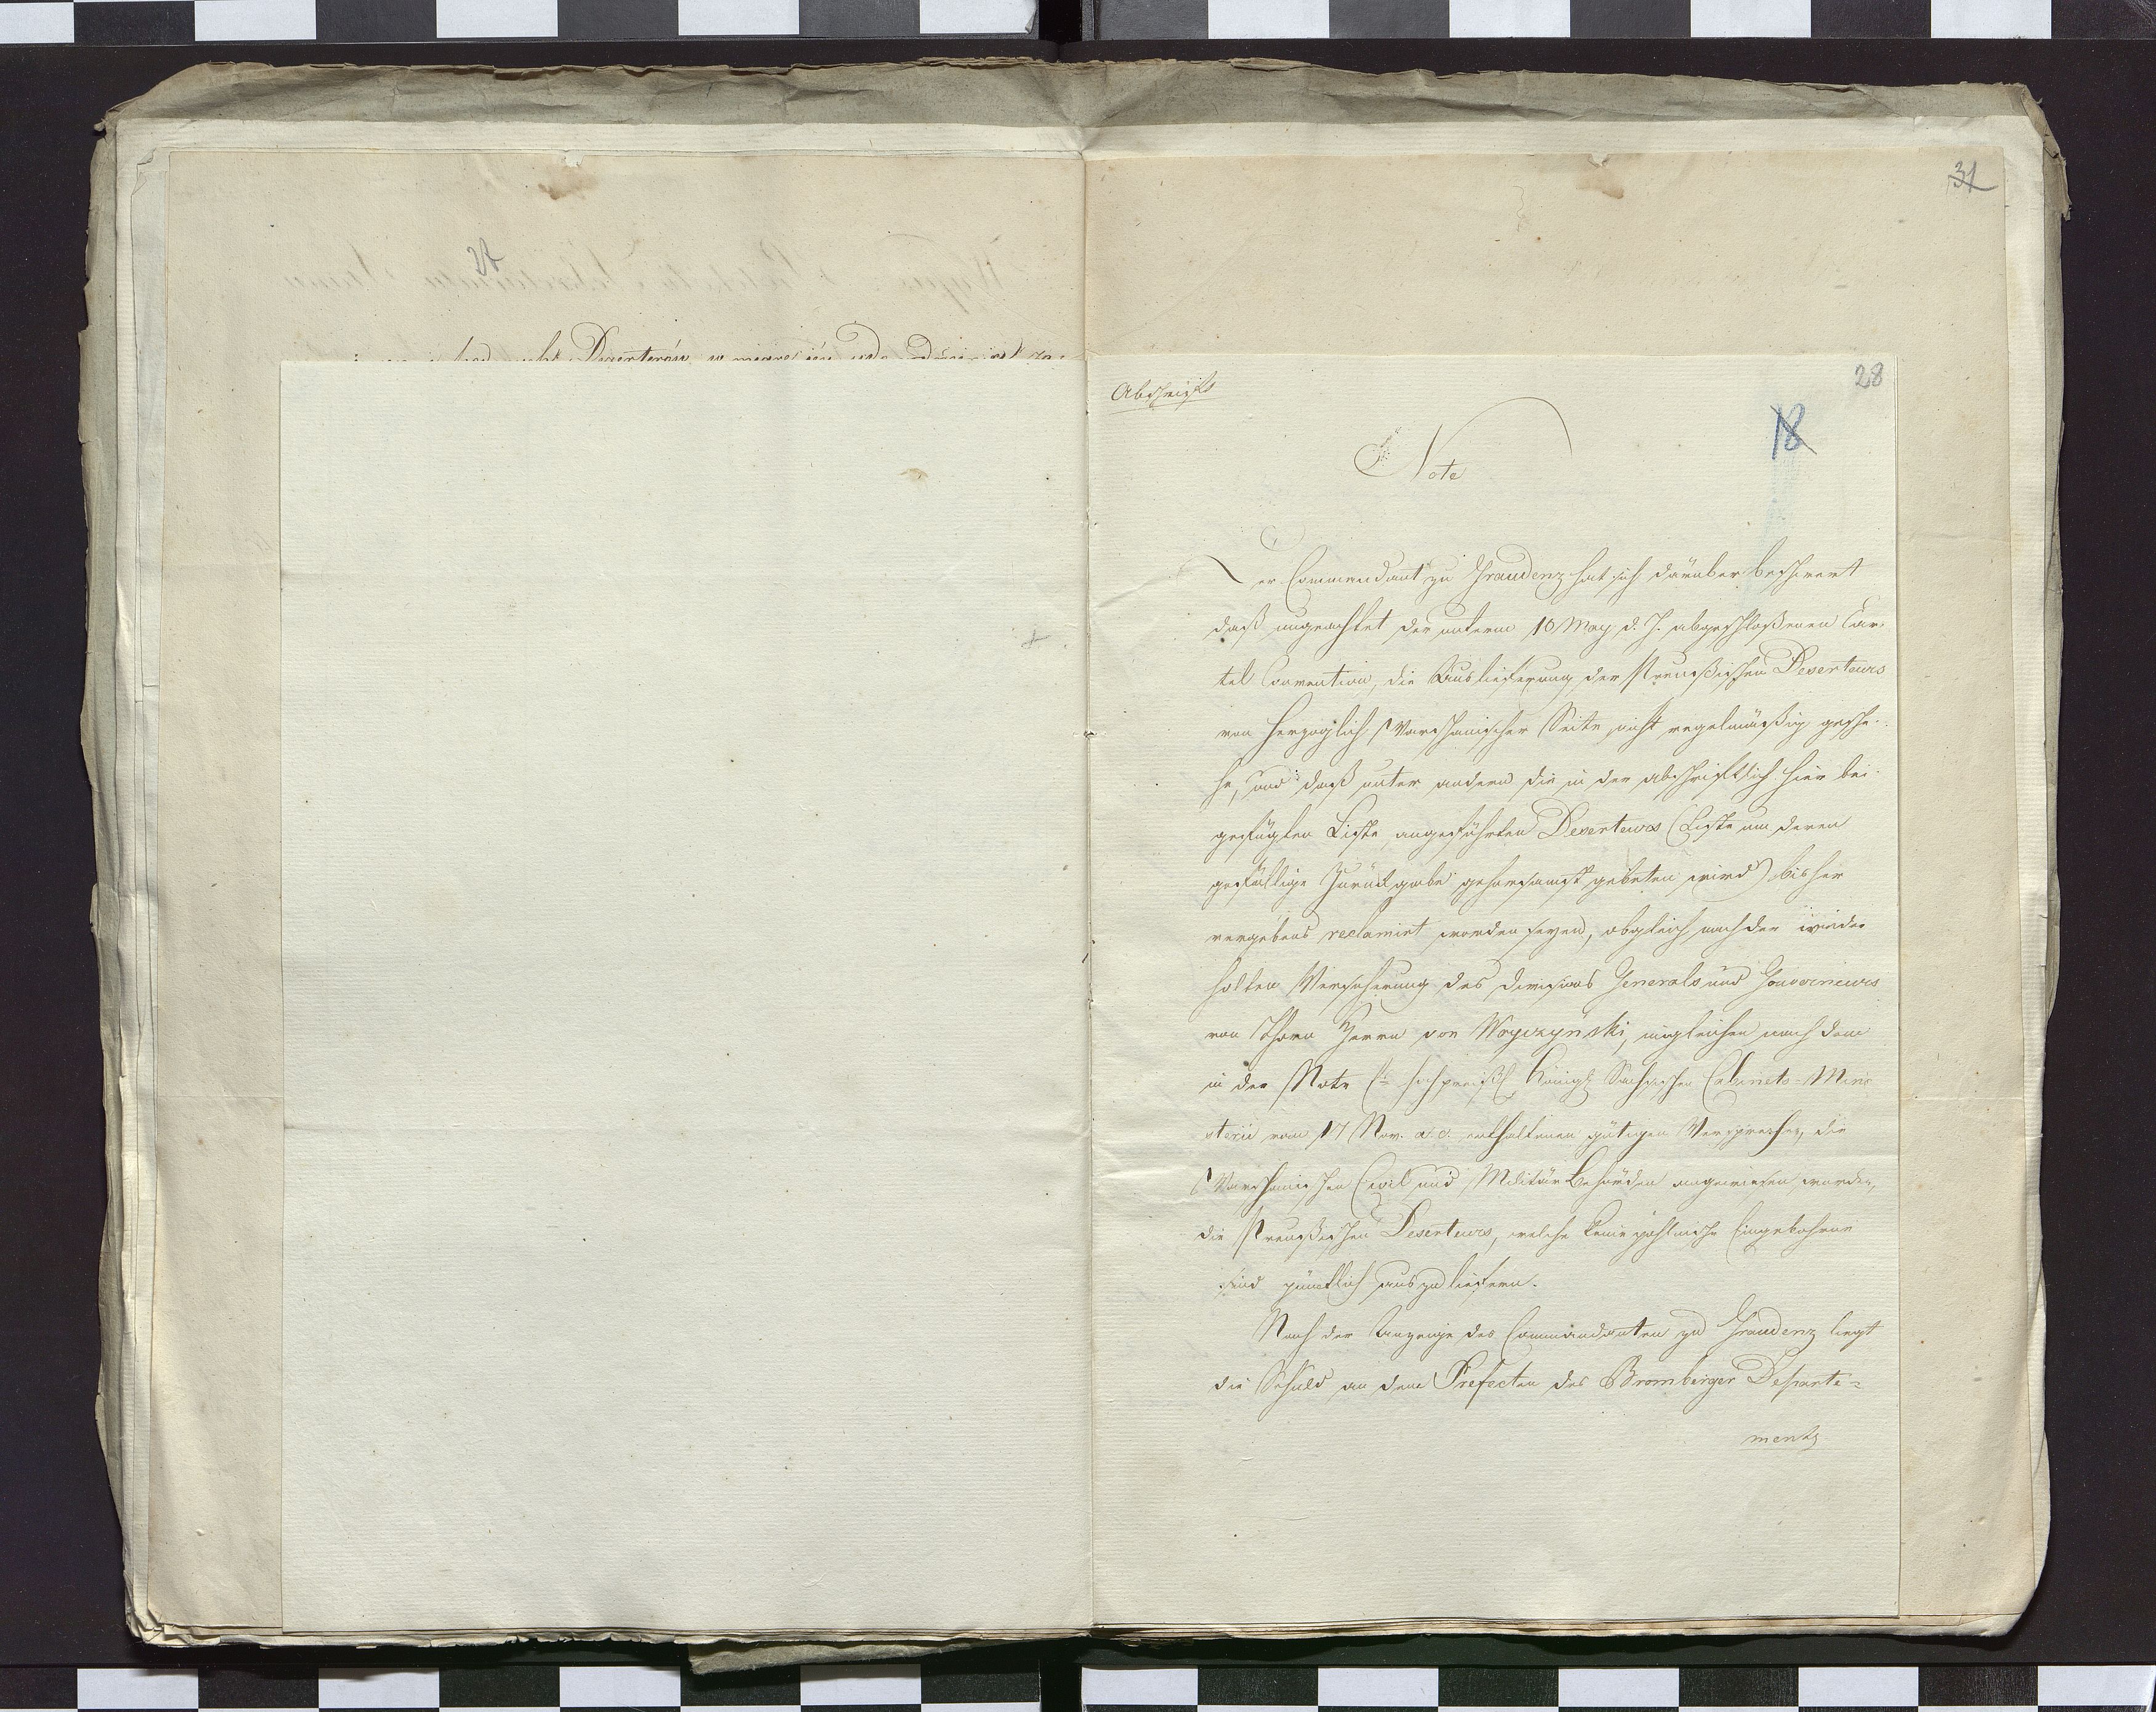 31
28
18
Abschrift
Note
Der Commandant zu Graudenz hat sich darüber beschwert
daß ungeachtet der unterm 10 May d. J. abgeschloßenen Car-
tel Convention, die Auslieferung der Preußischen Deserteurs
von Herzoglich Warschauischer Seite nicht regelmäßig gesche-
he, und daß unter andern die in der abschriftlich hier bei-
gefügten Liste angeführten Deserteurs (Liste um deren
gefällige Zurückgabe gehorsamst gebeten wird) bisher
vergebens reclamirt worden seyen, obgleich nach der wieder
holten Versicherung des Divisions Generals und Gouverneurs
von Thorn Herrn von Woyczyński, ingleichen nach dem
in der Note hochpreißl. Königl. Sächsischen Cabinets-Mini
sterii vom 17 Nov. a. c. enthaltenen gütigen Versprechen, die
Warschauischen Civil und Militär Behörden angewiesen worden,
die Preußischen Deserteurs, welche keine pohlnische Eingebohrne
sind pünktlich auszuliefern.
Nach der Anzeige des Commandanten zu Graudenz liegt
die Schuld an dem Prefecten des Bromberger Departe=
ments